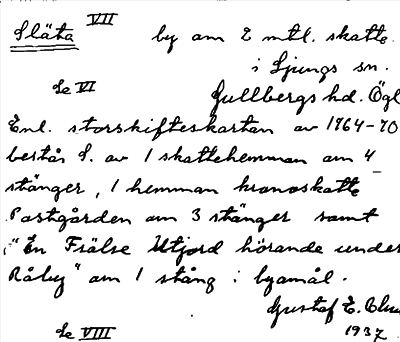 Släta VII by om 2 mtl. skatte.
i Ljungs sn.
Se VI Gullbergs hd. Ögl
Enl. storskifteskartan av 1764-70
består S. av 1 skattehemman om 4
stänger, 1 hemman kronoskatte
Postgården om 3 stänger samt
"En Frälse Utjord hörande under
Råby" om 1 stång i byamål.
Gustaf E.
Se VIII 1937